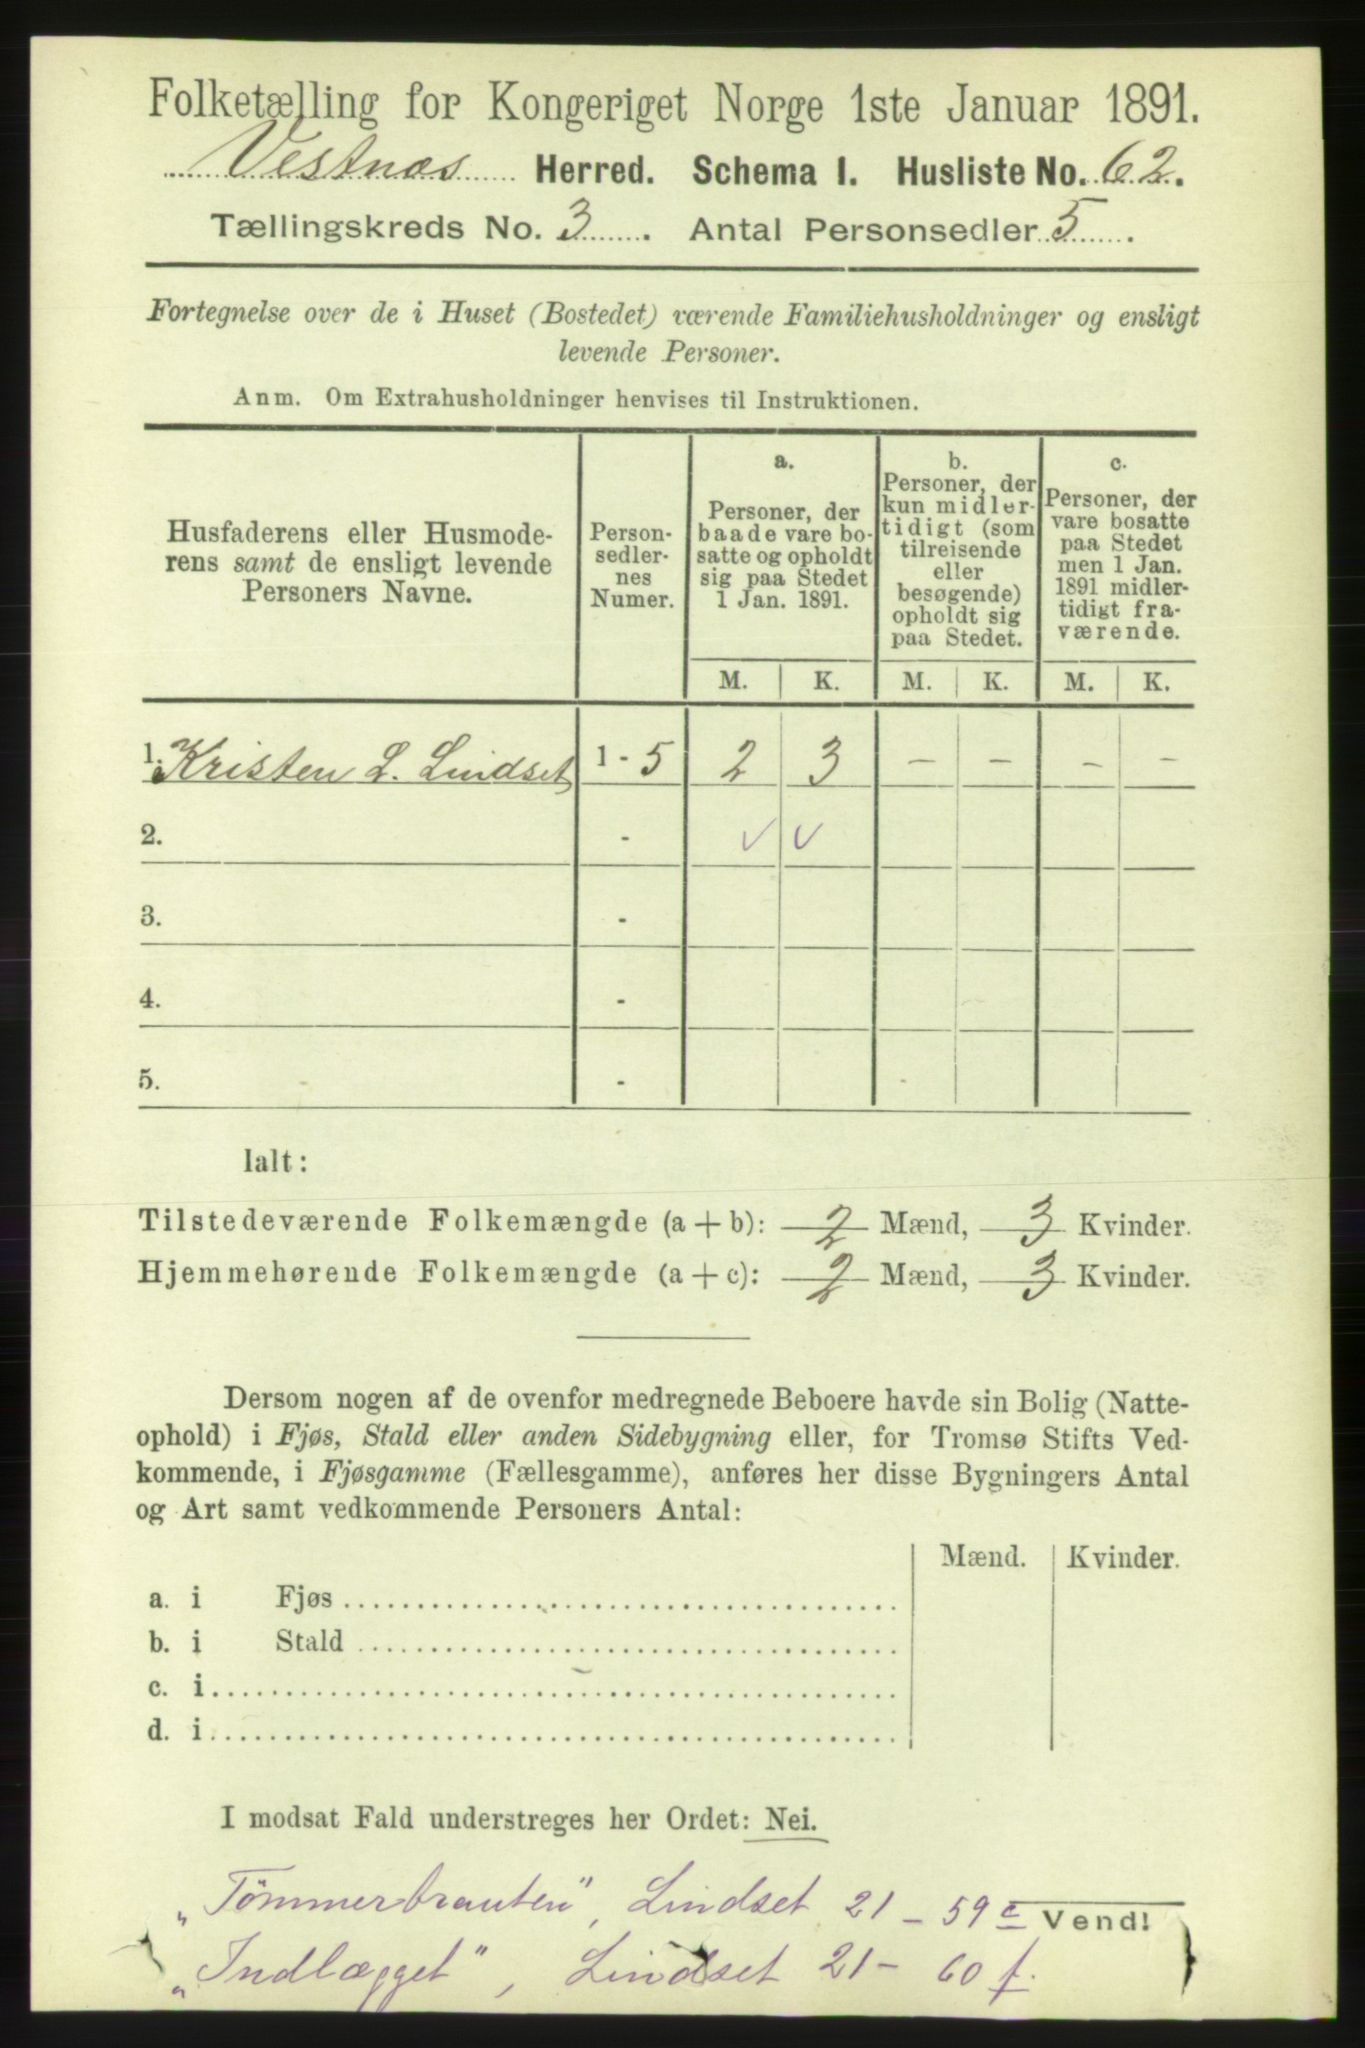 Folketælling for Kongeriget Norge 1ste Januar 1891.
Vestnæs Herred. Schema I. Husliste No. 62.
Tællingskreds No. 3. Antal Personsedler 5.
Fortegnelse over de i Huset (Bostedet) værende Familiehusholdninger og ensligt
levende Personer.
Anm. Om Extrahusholdninger henvises til Instruktionen.
Husfaderens eller Husmode-
rens samt de ensligt levende
Personers Navne.
Person-
sedler-
nes
Numer.
a.
Personer, der
baade vare bo-
satte og opholdt
sig paa Stedet
1 Jan. 1891.
b.
Personer, der
kun midler-
tidigt (som
tilreisende
eller
besøgende)
opholdt sig
paa Stedet.
c.
Personer, der
vare bosatte
paa Stedet
men 1 Jan.
1891 midler-
tidigt fra-
værende.
M. K. M. K. M. K.
1. Kristen L. Lindset 1 - 5 2 3 - - - -
2. - ✓ ✓
3. -
4. -
5. -
Ialt:
Tilstedeværende Folkemængde (a + b): 2 Mænd, 3 Kvinder.
Hjemmehørende Folkemængde (a + c): 2 Mænd, 3 Kvinder.
Dersom nogen af de ovenfor medregnede Beboere havde sin Bolig (Natte-
ophold) i Fjøs, Stald eller anden Sidebygning eller, for Tromsø Stifts Ved-
kommende, i Fjøsgamme (Fællesgamme), anføres her disse Bygningers Antal
og Art samt vedkommende Personers Antal:
Mænd. Kvinder.
a. i Fjøs
b. i Stald
c. i
d. i
I modsat Fald understreges her Ordet: Nei.
„Tömmerbrauten", Lindset 21 - 59 c
Vend!
„Indlægget", Lindset 21 - 60 f.